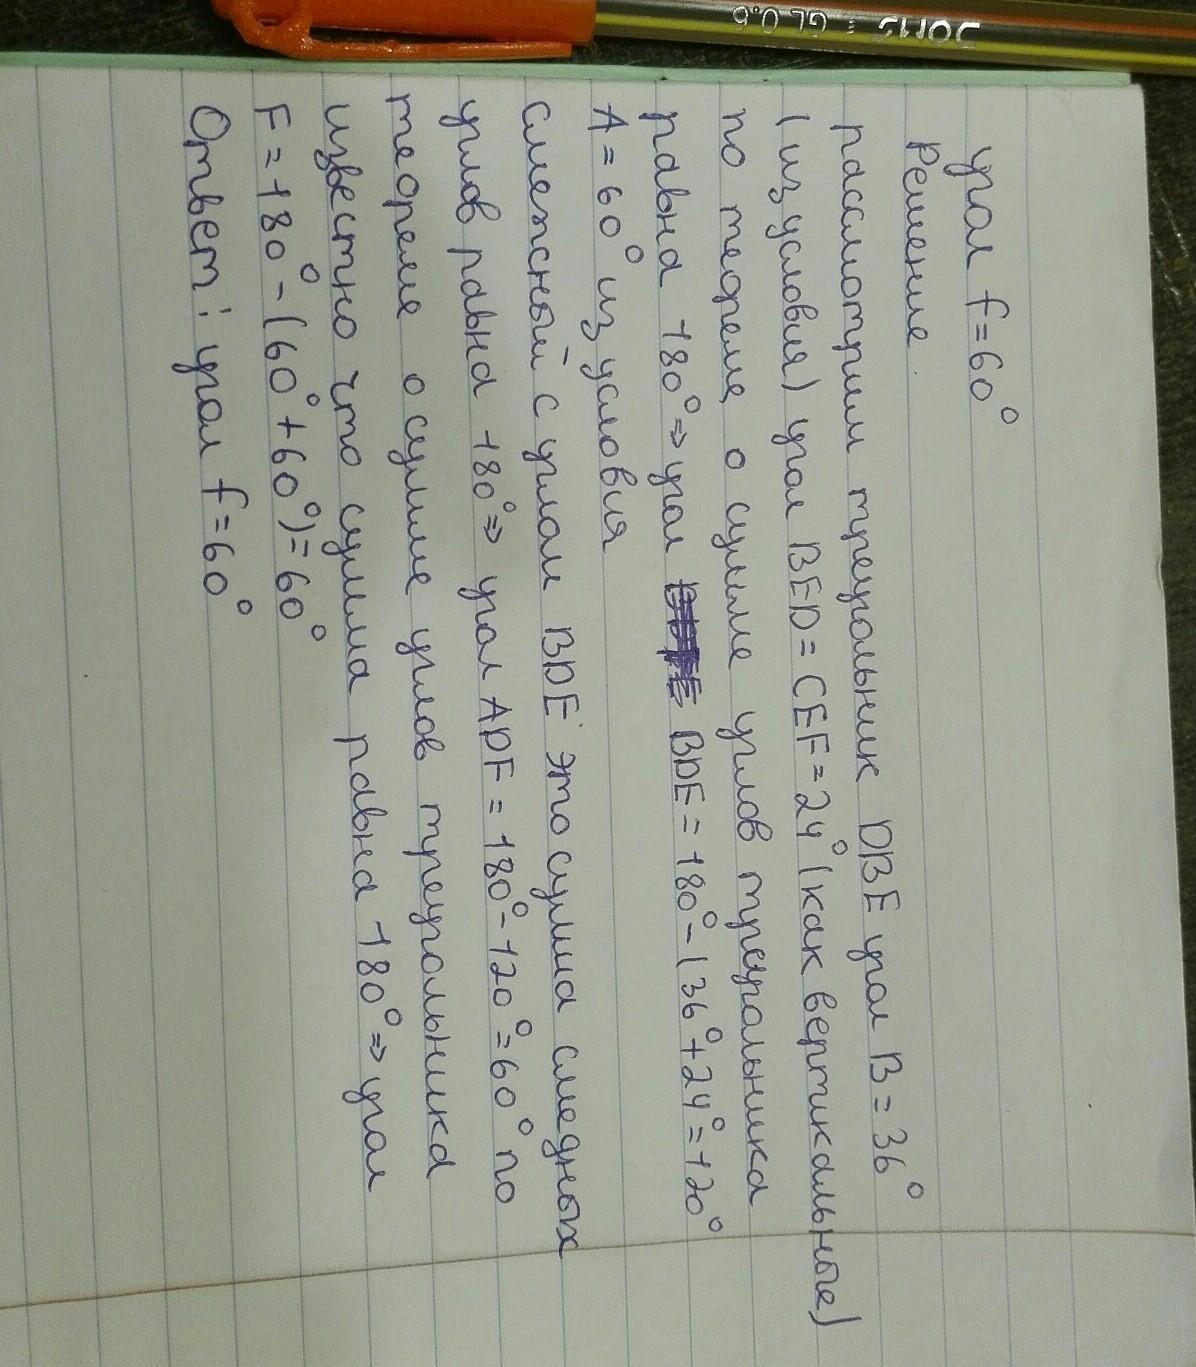 угол f=60°
Решение
рассмотрим треугольник DBE угол B=36°
(из условия) угол BED=CEF=24° (как вертикальные)
по теореме о сумме углов треугольника
равна 180°⇒угол BDE=180°-(36°+24°=120°
A=60° из условия
смежный с углом BDE это сумма следных
углов равна 180°⇒ угол ADF=180°-120°=60° по
теореме о сумме углов треугольника
известно что сумма равна 180°⇒угол
F=180°-(60°+60°)=60°
Ответ: угол f=60°
DOMS = GL 0.6